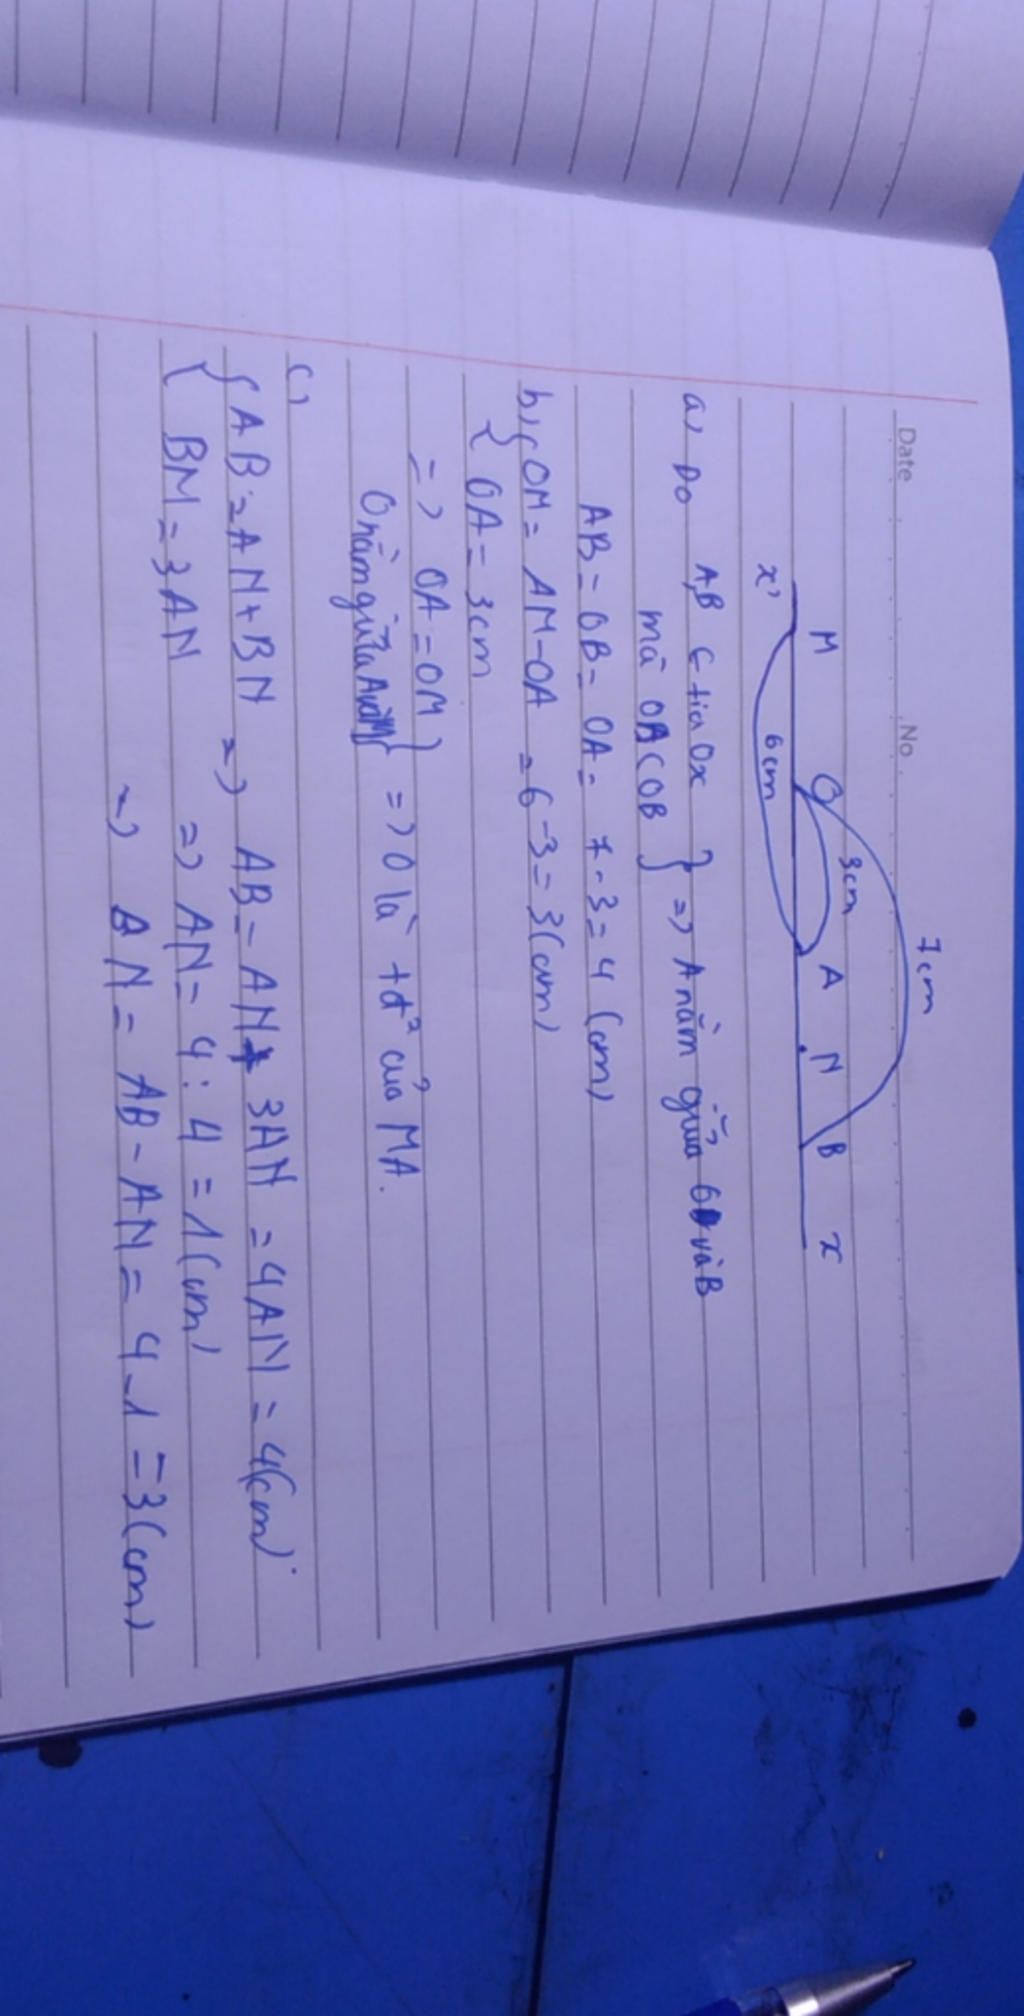 Date No
7cm
3cm
M O A N B x
x'
6cm
a, Do A,B ∈ tia Ox
mà OA < OB } => A nằm giữa O và B
AB = OB = OA = 7-3 = 4 (cm)
b, { OM = AM-OA = 6-3 = 3(cm)
{ OA = 3cm
=> OA = OM }
O nằm giữa A và M } => O là tđ² của MA.
c,
{ AB = AN + BN => AB = AN + 3AN = 4AN = 4(cm).
{ BM = 3AN => AN = 4 : 4 = 1(cm)
=> AN = AB - AN = 4-1 = 3(cm)